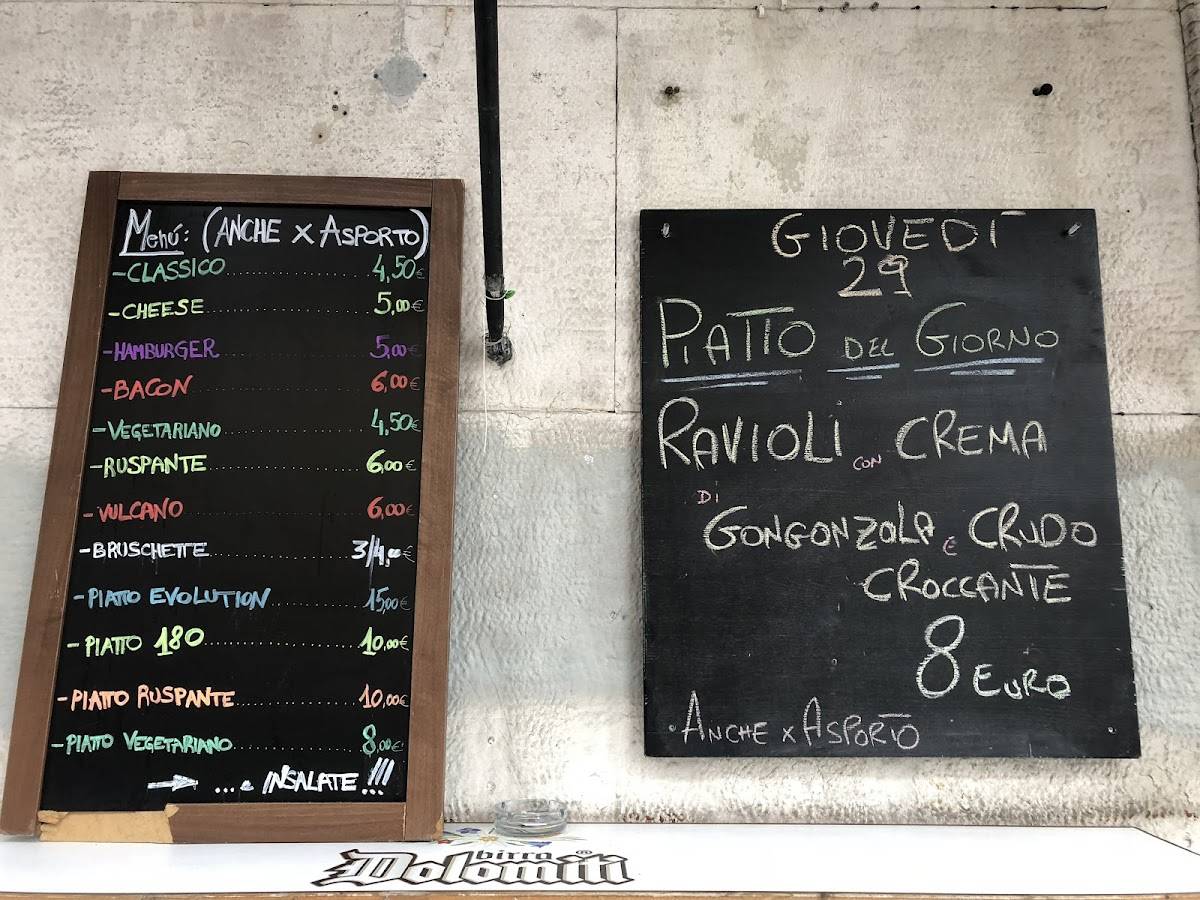 Menú: (ANCHE X ASPORTO)
- CLASSICO .......... 4,50€
- CHEESE .......... 5,00€
- HAMBURGER .......... 5,00€
- BACON .......... 6,00€
- VEGETARIANO .......... 4,50€
- RUSPANTE .......... 6,00€
- VULCANO .......... 6,00€
- BRUSCHETTE .......... 3/4,00€
- PIATTO EVOLUTION .......... 15,00€
- PIATTO 180 .......... 10,00€
- PIATTO RUSPANTE .......... 10,00€
- PIATTO VEGETARIANO .......... 8,00€
→ ... e INSALATE !!!
GIOVEDÌ
29
PIATTO DEL GIORNO
RAVIOLI CON CREMA
DI
GONGONZOLA E CRUDO
CROCCANTE
8 EURO
ANCHE X ASPORTO
birra®
Dolomiti